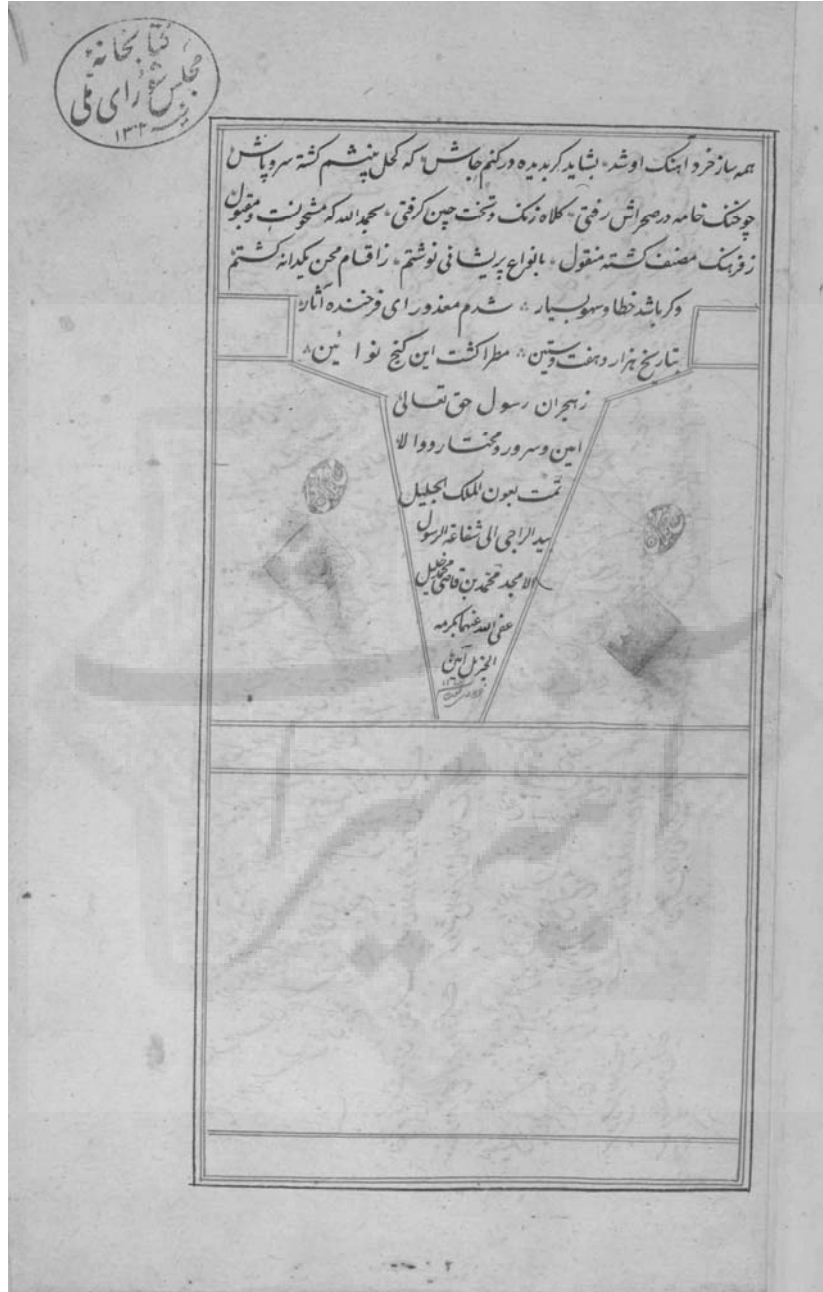 کتابخانهٔ
مجلس شورای ملی
۱۳۰۲
همه ساز خرد آهنک او شد ٭ بشاید کر بدیده در کنم جاش ٭ که کحل چشم کشته سر و پاش
چو خنک خامه در صحراش رفتی ٭ کلاه زنک و تخت چین کرفتی ٭ بحمد الله که مشحونست و مقبول
ز فرهنک مصنف کشته منقول ٭ بانواع پریشانی نوشتم ٭ ز اقسام محن یکدانه کشتم
وکر باشد خطا و سهو بسیار ٭ شدم معذور ای فرخنده آثار
بتاریخ هزار و هفت و ستین ٭ مطرا کشت این کنج نو ائین ٭
ز هجران رسول حق تعالی
امین و سرور و مختار و والا
تمت بعون الملک الجلیل
بید الراجی الی شفاعة الرسول
الامجد محمد بن قاضی محمد خلیل
عفی الله عنهما بکرمه
الجزیل آمین